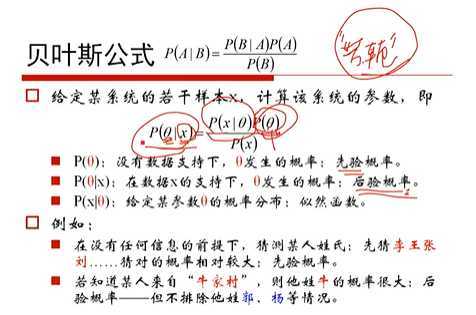 贝叶斯公式 P(A|B) = P(B|A)P(A) / P(B)
给定某系统的若干样本x，计算该系统的参数，即
P(θ|x) = P(x|θ)P(θ) / P(x)
P(θ)：没有数据支持下，θ发生的概率：先验概率。
P(θ|x)：在数据x的支持下，θ发生的概率：后验概率。
P(x|θ)：给定某参数θ的概率分布：似然函数。
例如：
在没有任何信息的前提下，猜测某人姓氏：先猜李王张
刘……猜对的概率相对较大：先验概率。
若知道某人来自“牛家村”，则他姓牛的概率很大：后
验概率——但不排除他姓郭、杨等情况。